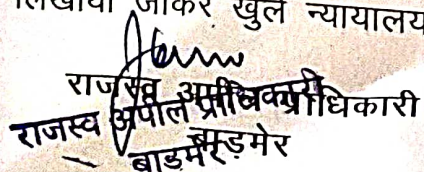 लिखाया जाकर खुले न्यायालय
राजस्व अपील प्राधिकारी
बाड़मेर
राजस्व अपील प्राधिकारी
बाड़मेर